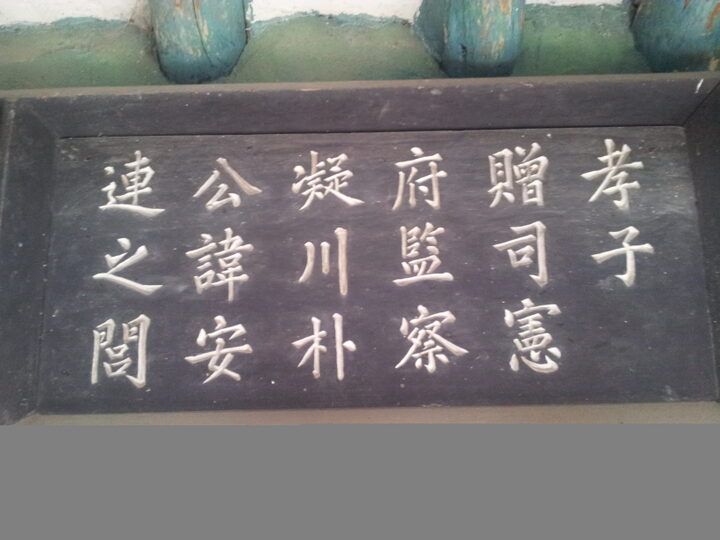 孝子
贈司憲
府監察
凝川朴
公諱安
連之閭